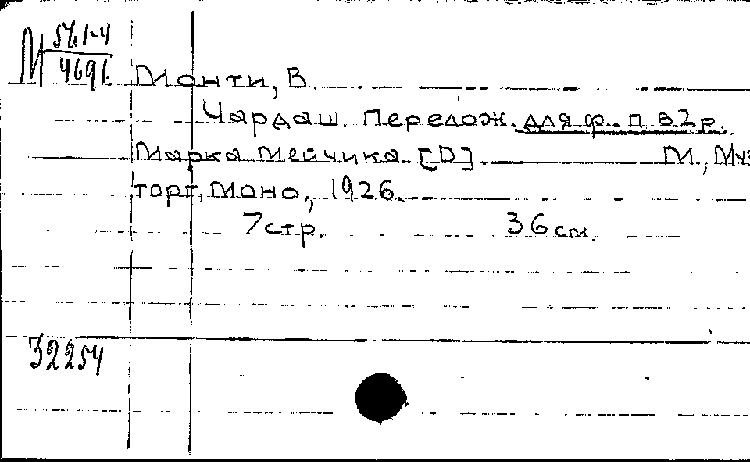 М 57.1-4
4691
Монти, В.
Чардаш. Перелож. для ф.-п. в 2 р.
Марка Мейчика. [D] М., Муз
торг, Моно, 1926.
7 стр. 36 см.
32254